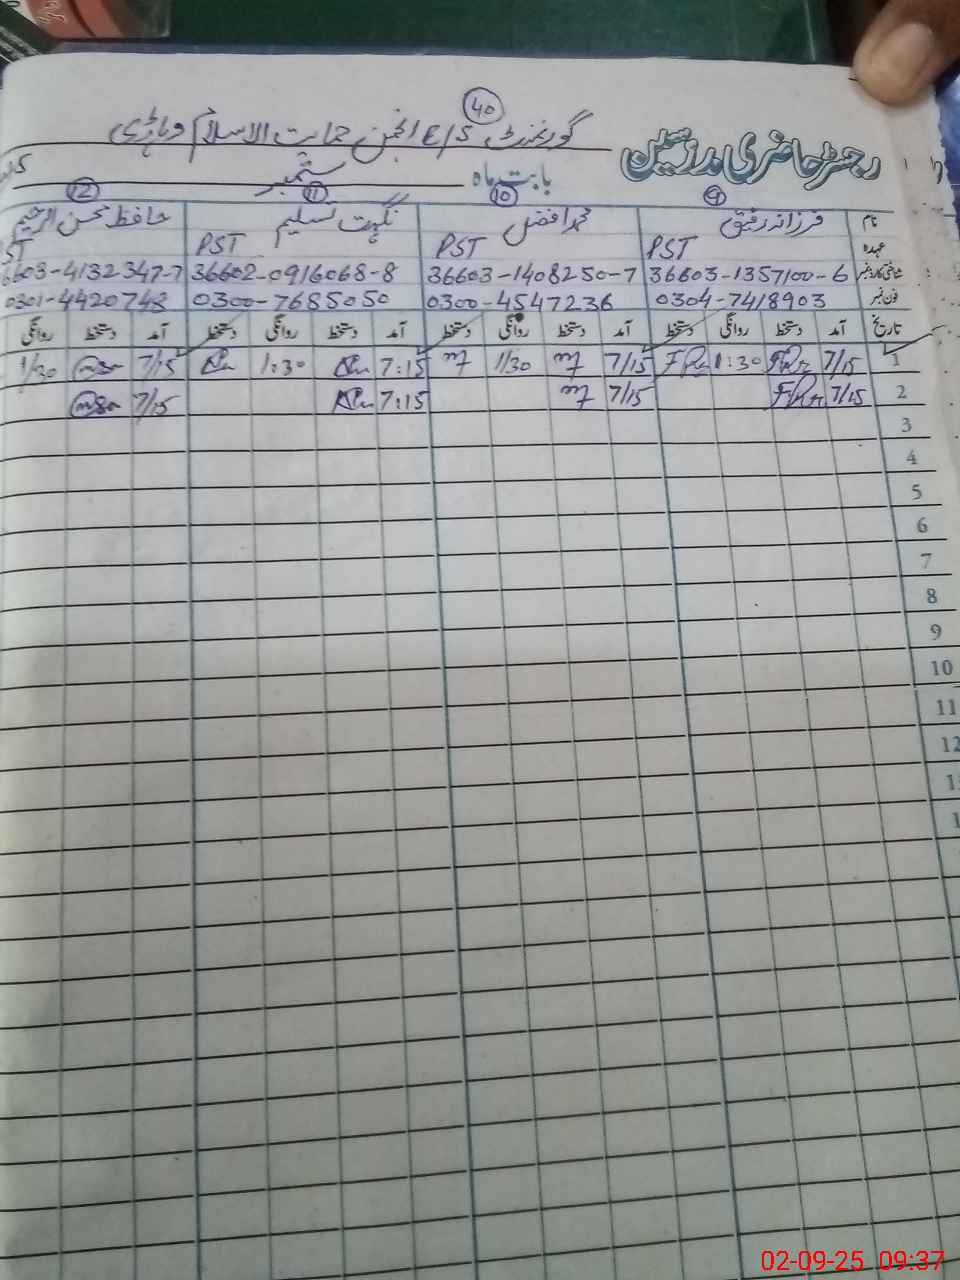 40
رجسٹر حاضری مدرسین گورنمنٹ E/S انجمن حمایت الاسلام وہاڑی
بابت ماہ ستمبر
9 10 11 12
نام فرزانہ رفیق محمد افضل نگہت تسلیم حافظ
عہدہ PST PST PST ST
شناختی کارڈ نمبر 36603-1357100-6 36603-1408250-7 36602-0916068-8 6603-4132347-7
فون نمبر 0304-7418903 0300-4547236 0300-7685050 0301-4420743
تاریخ آمد دستخط روانگی دستخط آمد دستخط روانگی دستخط آمد دستخط روانگی دستخط آمد دستخط روانگی
1 7/15 1:30 7/15 1/30 7:15 1:30 7/15 1/30
2 7/15 7/15 7:15 7/15
3
4
5
6
7
8
9
10
11
12
02-09-25 09:37